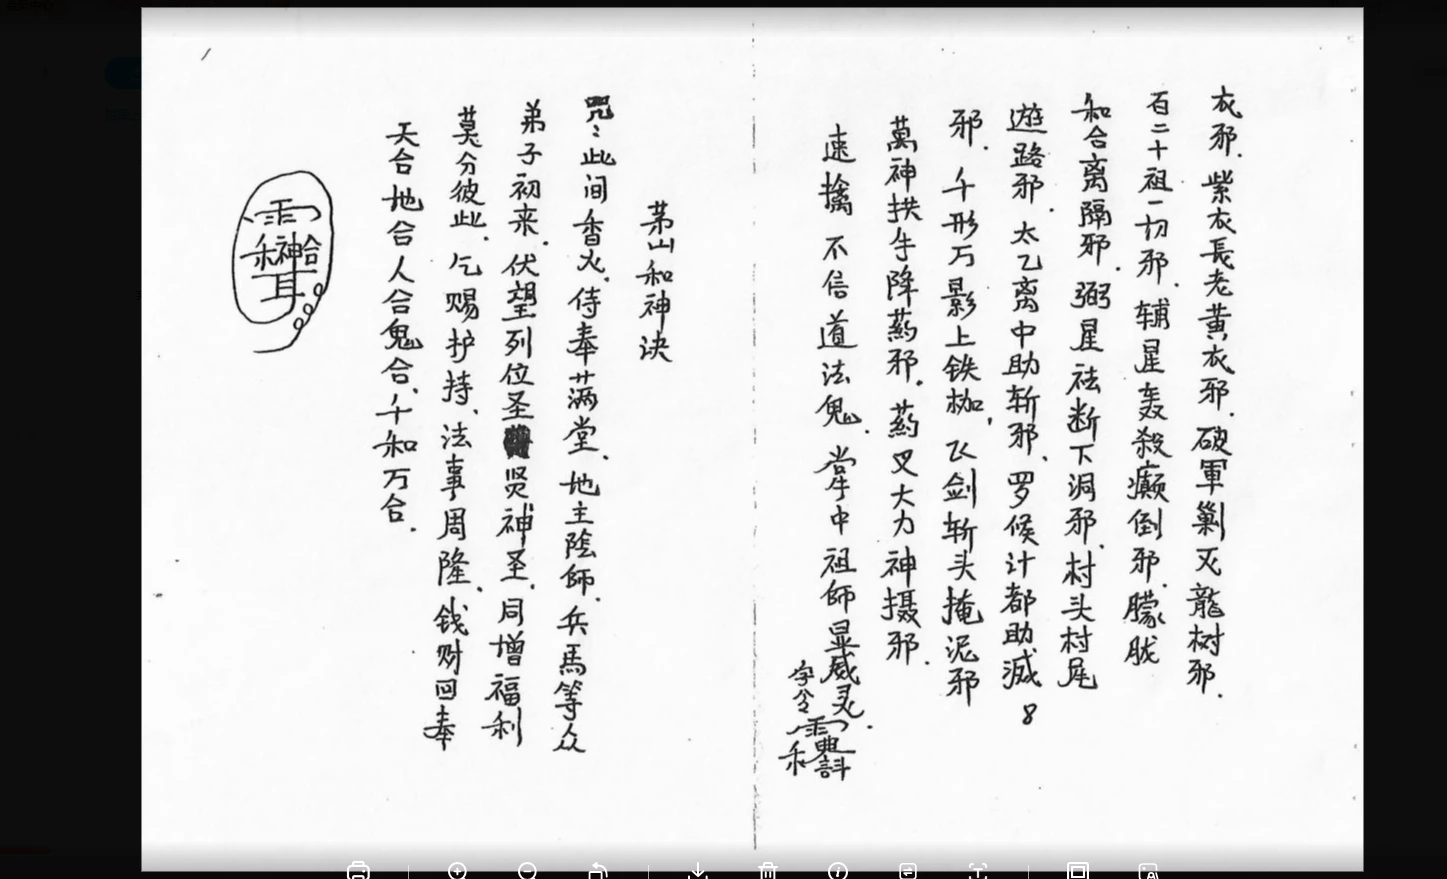 衣邪.紫衣長老黄衣邪.破軍剿灭龍树邪.
百二十祖一切邪.辅星轰殺癫倒邪.朦胧
和合离隔邪.弼星祛断下洞邪.村头村尾
遊路邪.太乙离中助斩邪.罗候计都助滅8
邪.千形万影上铁枷,飞剑斩头掩泥邪
萬神拱手降药邪.药叉大力神摄邪.
速擒不信道法鬼.掌中祖師显威灵.
字令
茅山和神诀
咒:此间香火.侍奉满堂.地主陰師.兵馬等众
弟子初来.伏望列位圣贤神圣.同增福利
莫分彼此.乞赐护持、法事周隆.钱财回奉
天合地合人合鬼合、千和万合.